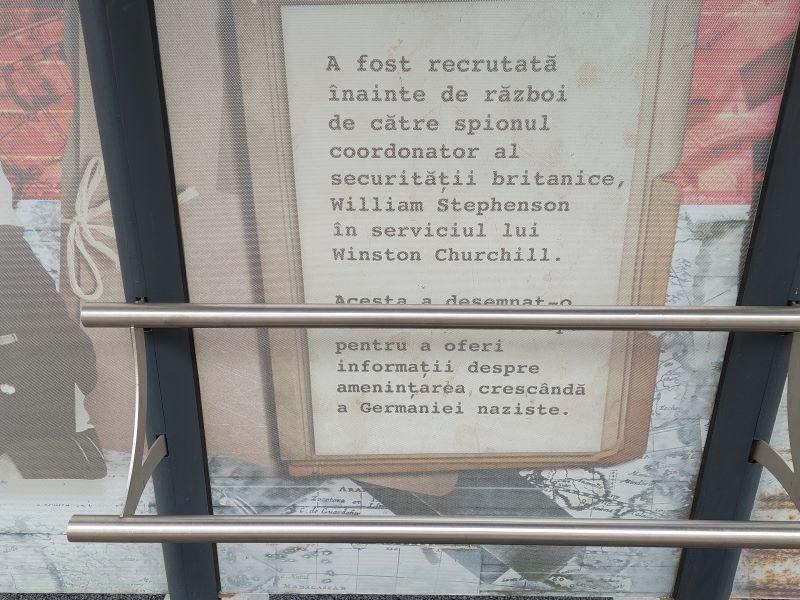 A fost recrutată
înainte de război
de către spionul
coordonator al
securității britanice,
William Stephenson
în serviciul lui
Winston Churchill.
Acesta a desemnat-o
pentru a oferi
informații despre
amenințarea crescândă
a Germaniei naziste.
C. de Guardafui
MADAGASCAR